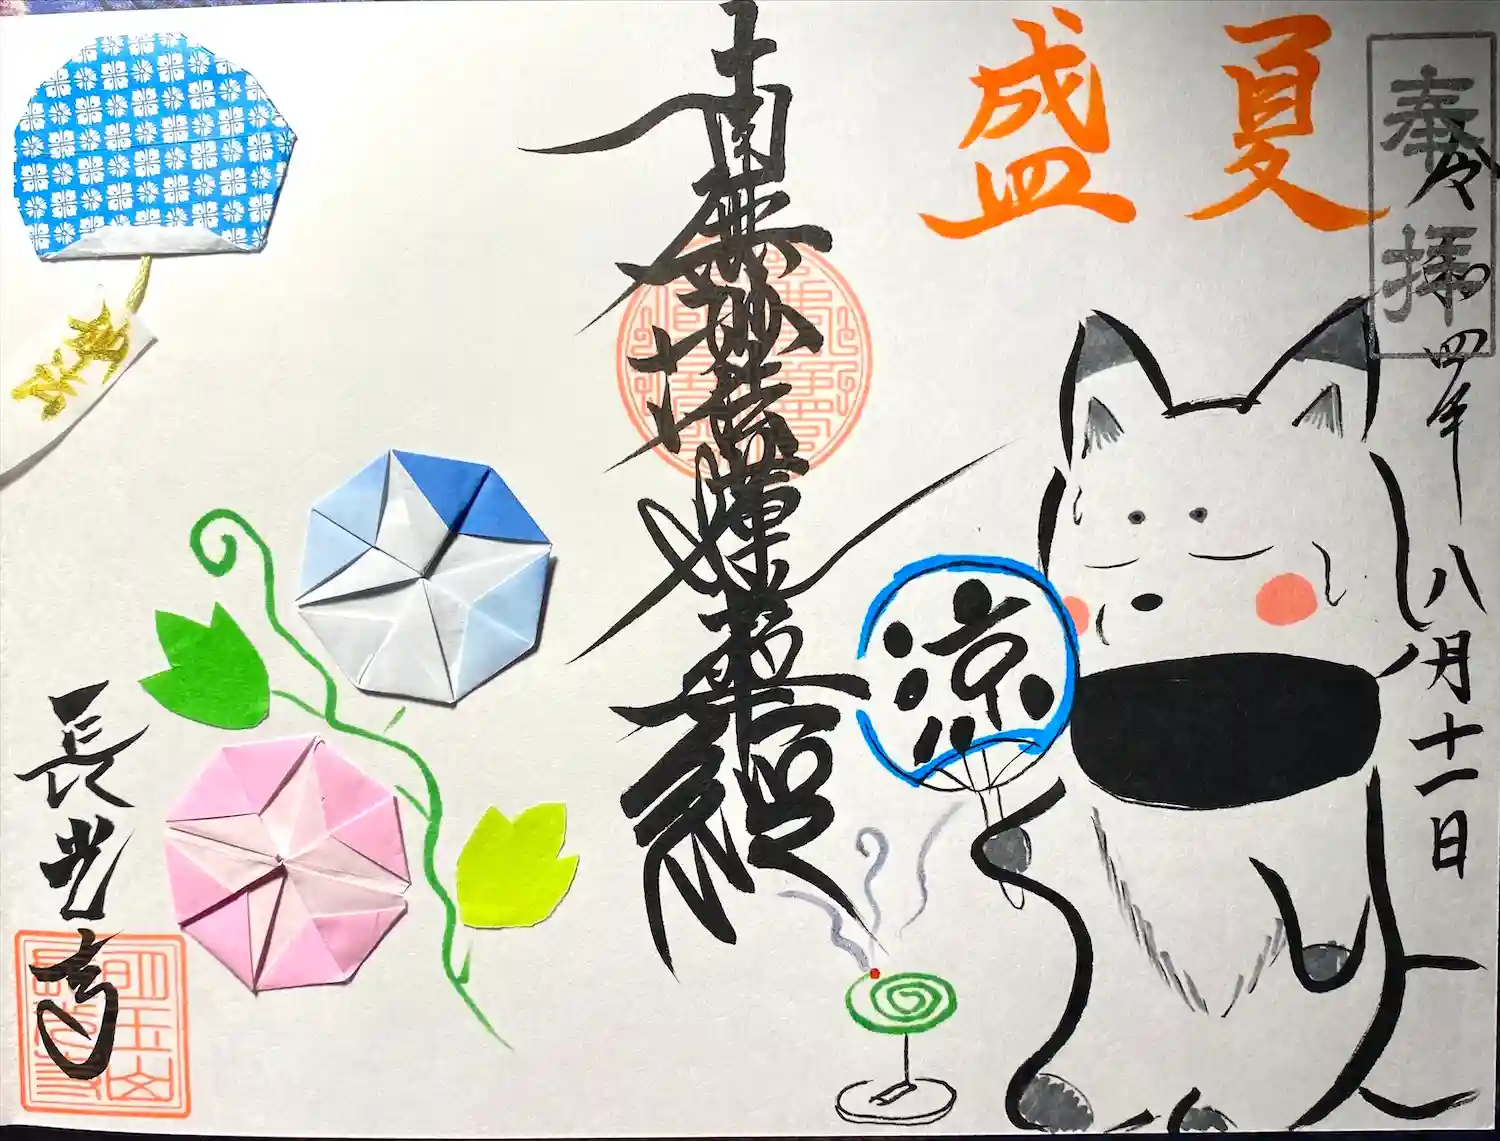 奉拝
令和四年八月十一日
盛夏
南無妙法蓮華經
涼
長光寺